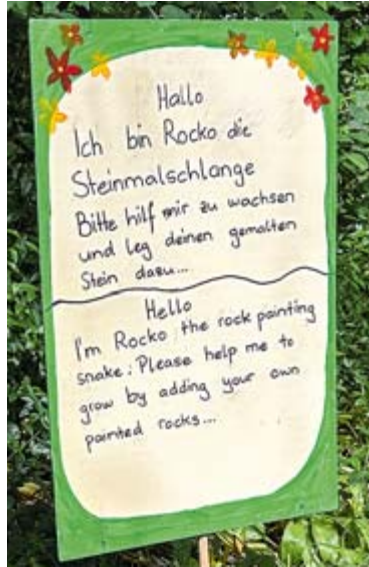 Hallo
Ich bin Rocko die
Steinmalschlange
Bitte hilf mir zu wachsen
und leg deinen gemalten
Stein dazu...
Hello
I'm Rocko the rock painting
snake. Please help me to
grow by adding your own
painted rocks...